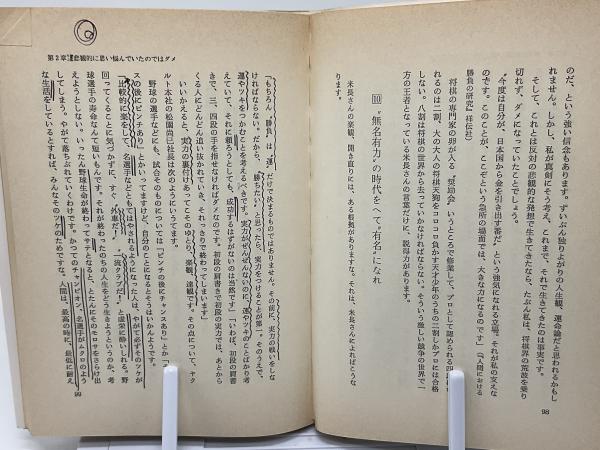 のだ、という強い信念もあります。ずいぶん独りよがりの人生観、運命論だと思われるかもし
れません。しかし、私が真剣にそう考え、これまで、それで生きてきたのは事実です。
そして、これとは反対の悲観的な発想で生きてきたなら、たぶん私は、将棋界の荒波を乗り
切れず、ダメになっていたことでしょう。
〝今度は自分が、日本国から金を引き出す番だ〟という強気になれる立場。それが私の支えな
のです。このことが、ここぞという急所の場面では、大きな力になるのです」(『人間における
勝負の研究』祥伝社)
将棋の専門家の卵が入る〝奨励会〟というところで修業して、プロとして認められる四段にな
れるのは二割、大の大人の将棋天狗をコロコロ負かす天才少年のうちの二割しかプロには合格
しない。八割は将棋の世界から去っていかなければならない。そういう激しい競争の世界で一
方の王者となっている米長さんの言葉だけに、説得力があります。
回〝無名有力〟の時代をへて〝有名〟になれ
米長さんの楽観、開き直りには、ある根拠があります。それは、米長さんによればこうな
ります。
98
第2章 悲観的に思い悩んでいたのではダメ
「もちろん、〝勝負〟は〝運〟だけで決まるものではありません。その前に、実力の戦いをしな
ければならない。だから、〝勝ちたい〟と思ったら、実力をつけることが第一。そのうえで、
運やツキをつかむことを考えるべきです。実力がぜんぜんないのに、運やツキのことばかり考
えていて、それに頼ろうとしても、成功するはずがないのは当然です」「いわば、初段の肩書
で、三、四段の手を指せなければダメなのです。初段の肩書きで初段の実力では、あとから
くる人にどんどん追い抜かれていき、それっきりで終わってしまいます」
いいかえると、実力の裏付けあってこそのゆとり、楽観、達観です。その点について、ヤク
ルト本社の松園尚巳社長は次のようにいってます。
野球の選手などにも、試合そのものについては「ピンチの後にチャンスあり」とか「チャン
スの後にピンチあり」とかいってますけど、自分のことになるとそうはいかんようです。
「比較的に楽をして、名選手などともてはやされるようになった人は、やがて必ずそのツケが
回ってくることに気づかずに、すぐ「外車だ！」「一流クラブだ！」と虚栄に酔いしれる。野
球選手の寿命なんて短いもんです。それが終わったのちの人生をどう生きようというのか、考
えようとしない。いったん野球生命が終わってサテとなると、とたんにそのモロサをさらけ出
してしまう。やがて落ちぶれていくわけです。かつてのチャンピオン、名選手がムクロのよう
な生活をしているとすれば、みんなそのツケのためですな。人間は、最高の時に、最低に耐え
99